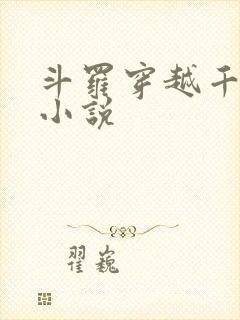 斗羅穿越千
小說
翟巍